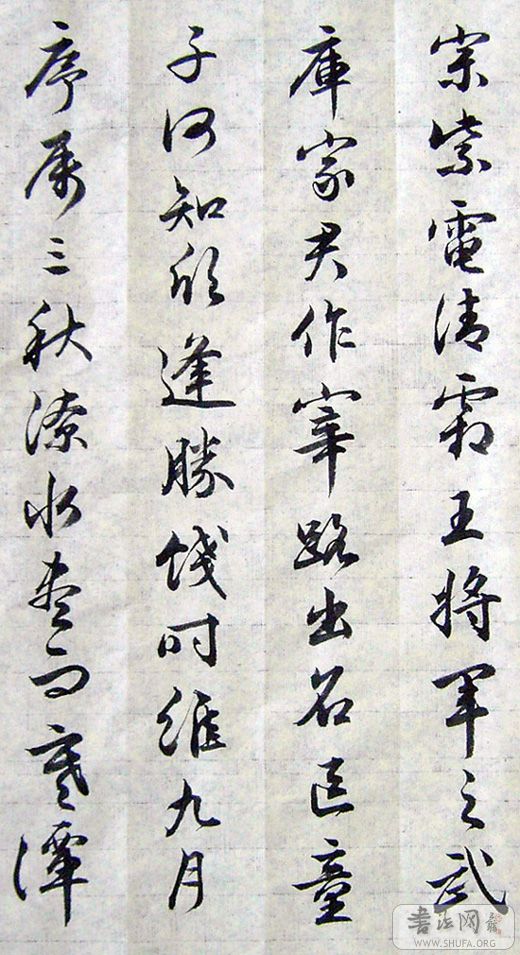 宗紫電清霜王將軍之武
庫家君作宰路出名區童
子何知躬逢勝餞时維九月
序属三秋潦水尽而寒潭
書法网
WWW.SHUFA.ORG